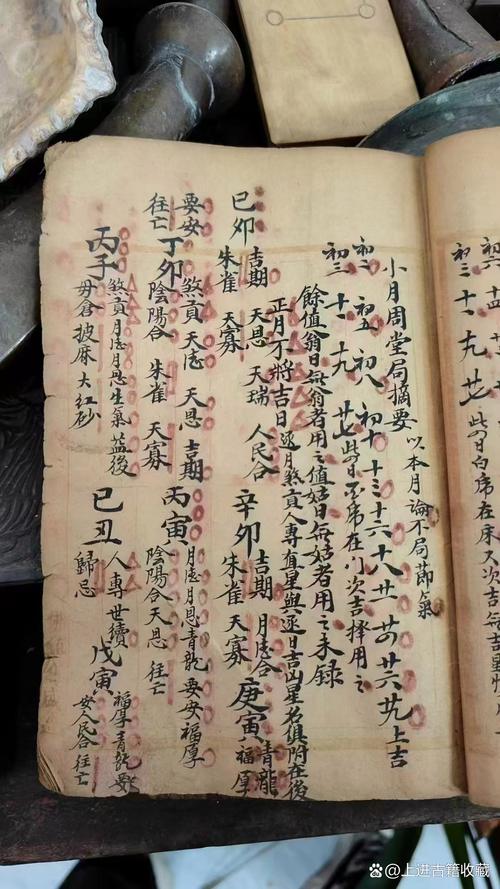 初六 十四
初三 十一 十九 廿七 此日席在床又次吉
小月周堂局摘要 以本月論不局節氣
初二 初五 初八 初十 十三 十六 十八 廿一 廿四 廿六 廿九 上吉
初三 十一 十九 廿七 此日席在门次吉擇用之
餘值翁日無翁者用之值姑日無姑者用之未録
正月不將吉日 逐月煞貢人專直星與逐日吉凶星名俱附在後
己卯 吉期 天恩 天瑞 人民合
朱雀 天寡
辛卯 吉期 月德合
朱雀 天寡
庚寅 青龍
福厚
要安
往亡
丁卯 煞貢 天德 天恩 吉期
陰陽合 朱雀 天寡
丙寅 月德月恩青龍 要安 福厚
陰陽合天恩 往亡
丙子 煞貢月德月恩生氣益後
母倉 披麻 大紅砂
己丑 人專世續
歸忌
戊寅 福厚青龍要
安人民合 往亡
@上进古籍收藏